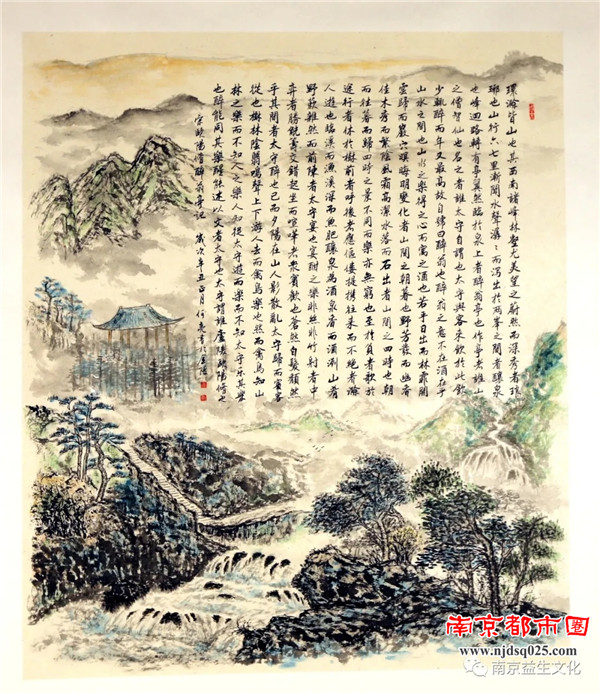 環滁皆山也其西南諸峰林壑尤美望之蔚然而深秀者琅
琊也山行六七里漸聞水聲潺〻而瀉出於兩峯之間者釀泉
也峰迴路轉有亭翼然臨於泉上者醉翁亭也作亭者誰山
之僧智仙也名之者誰太守自謂也太守與客來飲於此飲
少輒醉而年又最高故自號曰醉翁也醉翁之意不在酒在乎
山水之間也山水之樂得之心而寓之酒也若乎日出而林霏開
雲歸而巖穴暝晦明變化者山間之朝暮也野芳發而幽香
佳木秀而繁陰風霜高潔水落而石出者山間之四時也朝
而往暮而歸四時之景不同而樂亦無窮也至於負者歌於
途行者休於樹前者呼後者應傴僂提攜往來而不絕者滁
人遊也臨溪而漁溪深而魚肥釀泉為酒泉香而酒洌山肴
野蔌雜然而前陳者太守宴也宴酣之樂非絲非竹射者中
弈者勝觥籌交錯起坐而喧嘩者眾賓歡也蒼然白髮頹然
乎其間者太守醉也已而夕陽在山人影散亂太守歸而賓客
從也樹林陰翳鳴聲上下遊人去而禽鳥樂也然而禽鳥知山
林之樂而不知人之樂人知從太守遊而樂而不知太守樂其樂
也醉能同其樂醒能述以文者太守也太守謂誰廬陵歐陽脩也
宋歐陽脩醉翁亭記 歲次辛丑正月 何亮書於金陵
南京都市圈
www.njdsq025.com
南京益生文化